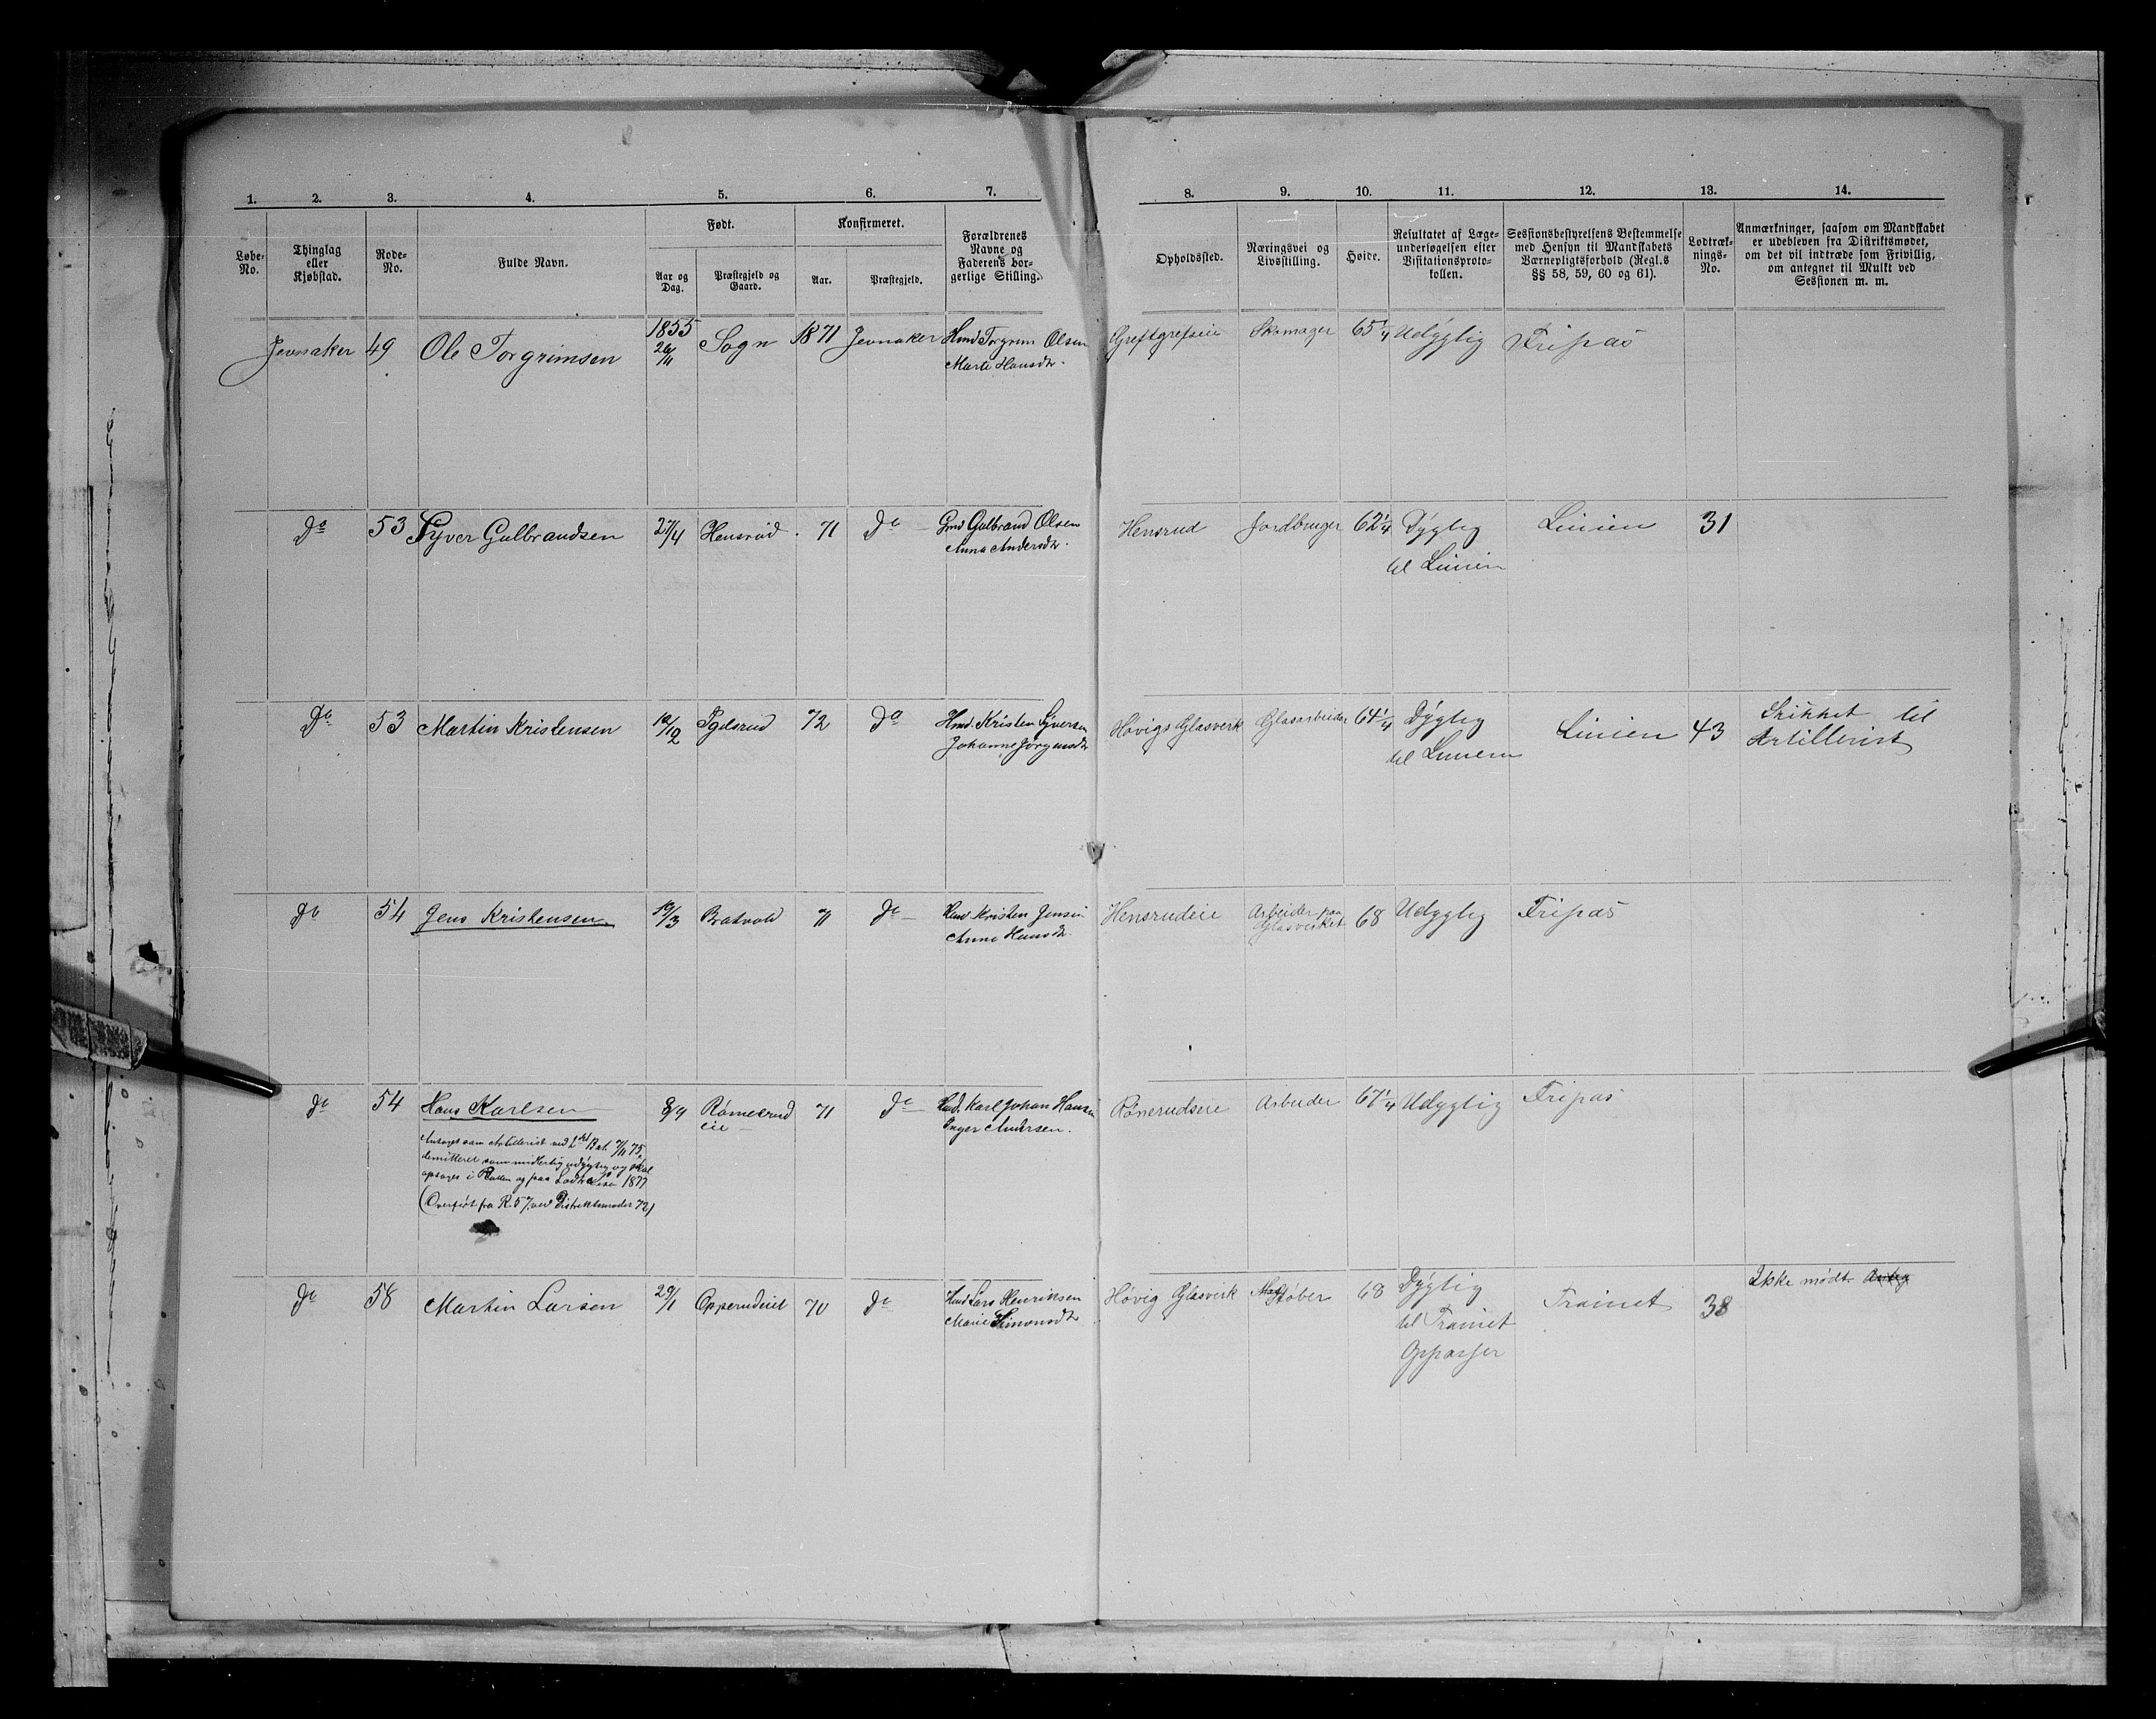 1. 2. 3. 4. 5. 6. 7. 8. 9. 10. 11. 12. 13. 14.
Løbe-No.
Thinglag eller Kjøbstad.
Rode-No.
Fulde Navn.
Født.
Aar og Dag.
Præstegjeld og Gaard.
Konfirmeret.
Aar.
Præstegjeld.
Forældrenes Navne og Faderens borgerlige Stilling.
Opholdssted.
Næringsvei og Livsstilling.
Høide.
Resultatet af Lægeundersøgelsen efter Visitationsprotokollen.
Sessionsbestyrelsens Bestemmelse med Hensyn til Mandskabets Værnepligtsforhold (Regl.s §§ 58, 59, 60 og 61).
Lodtræknings-No.
Anmærkninger, saasom om Mandskabet er udebleven fra Distriktsmødet, om det vil indtræde som Frivillig, om antegnet til Mulkt ved Sessionen m. m.
Jevnaker 49 Ole Torgrimsen 1855 26/11 Sogn 1871 Jevnaker Hmd Torgrim Olsen Skomager 65 1/4 Udygtig Fripas
Marte Hansdtr.
Do 53 Syver Gulbrandsen 27/4 Hensrud. 71 Do Gmd Gulbrand Olsen Hensrud Jordbruger 62 1/4 Dygtig Linien 31
Anna Andersdtr. til Linien
Do 53 Martin Kristensen 72 Do Hmd. Kristen Syversen Høvigs Glasverk Glasarbeider 64 1/4 Dygtig Linien 43 Skikket til
Johanne Jørgensdtr til Linien Artillerist
Do 54 Jens Kristensen 19/3 Bratvold 71 Do Hmd Kristen Jensen Hensrudeie Arbeider paa 68 Udygtig Fripas
Anne Hansdtr. Glasverket
Do 54 Hans Karlsen 8/9 71 Do Hmd. Karl Johan Hansen Rønerudseie Arbeider 67 1/4 Udygtig Fripas
eie Inger Andersen.
Antaget som Artillerist ved 75,
demitteret som midlertidig udygtig og skal
optages i Rullen og paa 1877
(Overført fra R. 57 ved Distriktsmødet 72)
Do 58 Martin Larsen 29/1 Opperudeiet 70 Do Hmd Lars Henriksen Høvig Glasverk 68 Dygtig Trainet 38 Ikke mødt
Marie Simonsdtr til Trainet
Oppasser